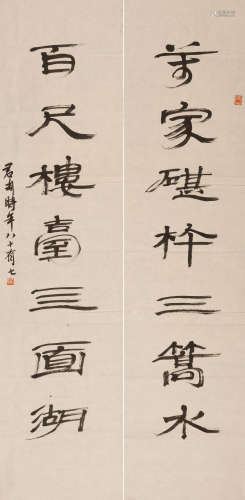 萬家碪杵三篙水
百尺樓臺三面湖
君匋時年八十有七